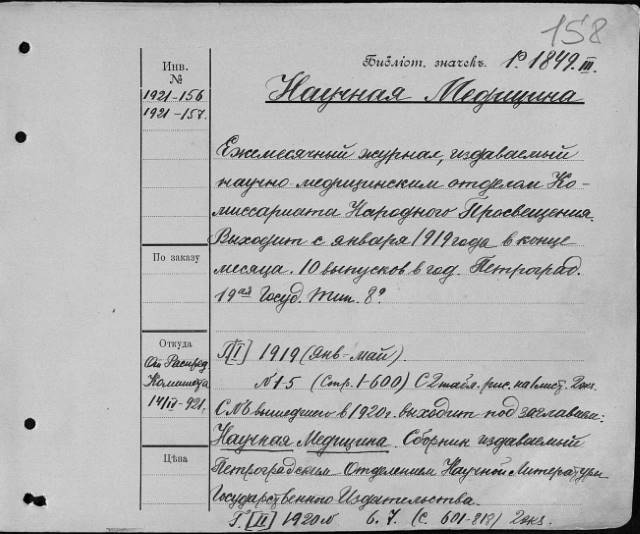 158
Библіот. значекъ. Р. 1849.III.
Инв.
№
1921-156
1921-157.
Научная Медицина
Ежемесячный журнал, издаваемый
научно медицинским отделом Ко-
миссариата Народного Просвещения.
Выходит с января 1919 года в конце
месяца. 10 выпусков в год. Петроград.
19ая Госуд. тип. 8°
По заказу
Откуда
От Распред
Комитета
14/IV-921 г.
Цѣна
Г[I] 1919 (Янв-май).
N 1-5 (Стр. 1-600) С 2 табл. рис. на 1 лист. 2 экз.
С №6 вышедшего в 1920 г. выходит под заглавием:
Научная Медицина. Сборник издаваемый
Петроградским Отделением Научной Литературы
Государственного Издательства.
Г. [II] 1920 N 6. 7. (с. 601-818) 2 экз.